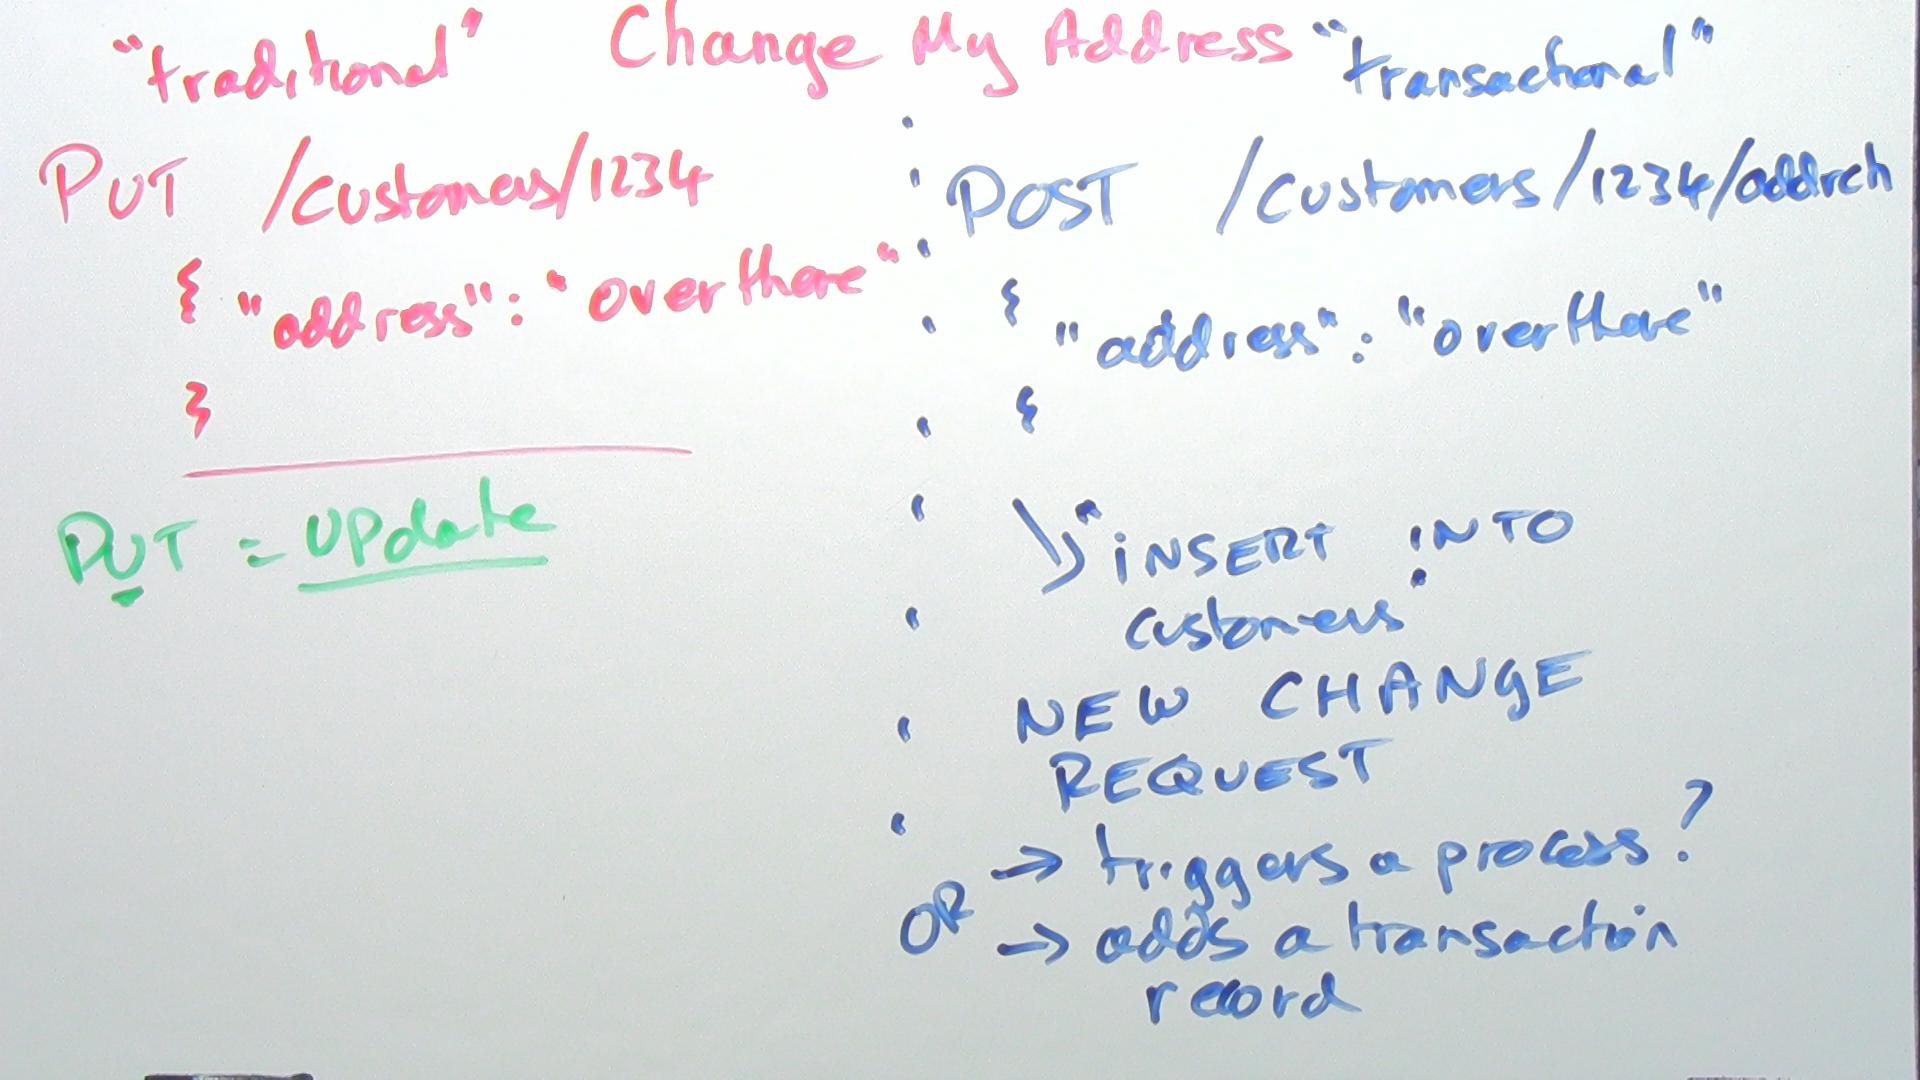 Change My Address
"traditional"
PUT /customers/1234
{ "address": "over there"
}
PUT = UPdate
"transactional"
POST /customers/1234/addrch
{
"address": "over there"
{
"INSERT INTO
customers"
NEW CHANGE
REQUEST
→ triggers a process?
OR → adds a transaction
record